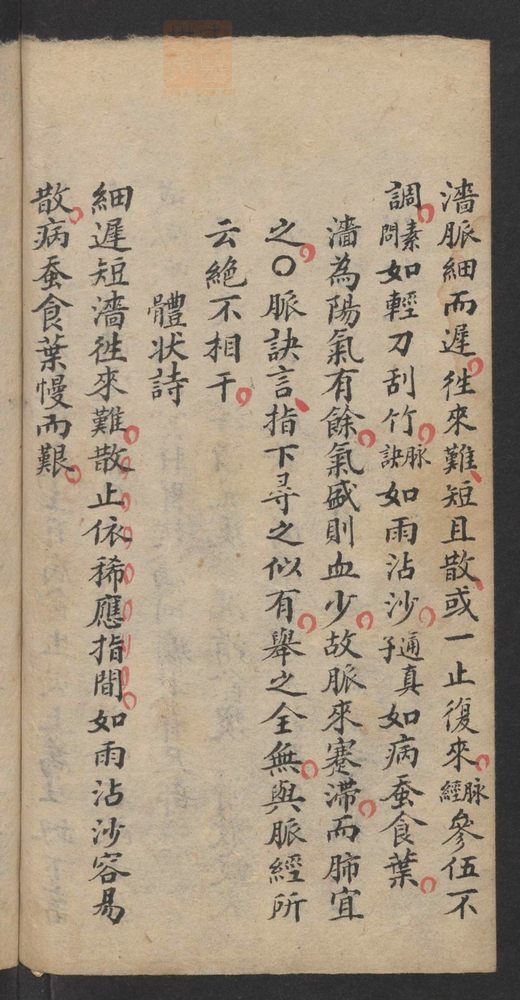 濇脈細而遲徃來難短且散或一止復來脈經參伍不
調素問如輕刀刮竹脈訣如雨沾沙通真子如病蚕食葉
濇為陽氣有餘氣盛則血少故脈來蹇滯而肺宜
之○脈訣言指下尋之似有舉之全無與脈經所
云絶不相干
體状詩
細遲短濇徃來難散止依稀應指間如雨沾沙容易
散病蚕食葉慢而艱